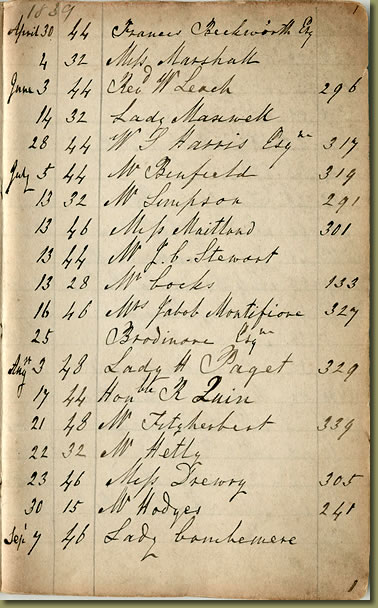 1839
April 30 44 Francis Beckworth Esq
4 32 Miss Marshall
June 3 44 Revd W Leach 296
14 32 Lady Maxwell
28 44 W S Harris Esqre 317
July 5 44 Mr Benfield 319
13 32 Mr Simpson 291
13 46 Miss Maitland 301
13 44 Mr J. C. Stewart
13 28 Mr Cocks 133
16 46 Mrs Jabob Montifiore 327
25 Brodinore Esqre
Augst 3 48 Lady H Paget 329
17 44 Honble R Quin
21 48 Mr Fitzherbert 339
22 32 Mr Hetly
23 46 Miss Drewry 305
30 15 Mr Hodges 241
Sep 7 46 Lady Combemere
1